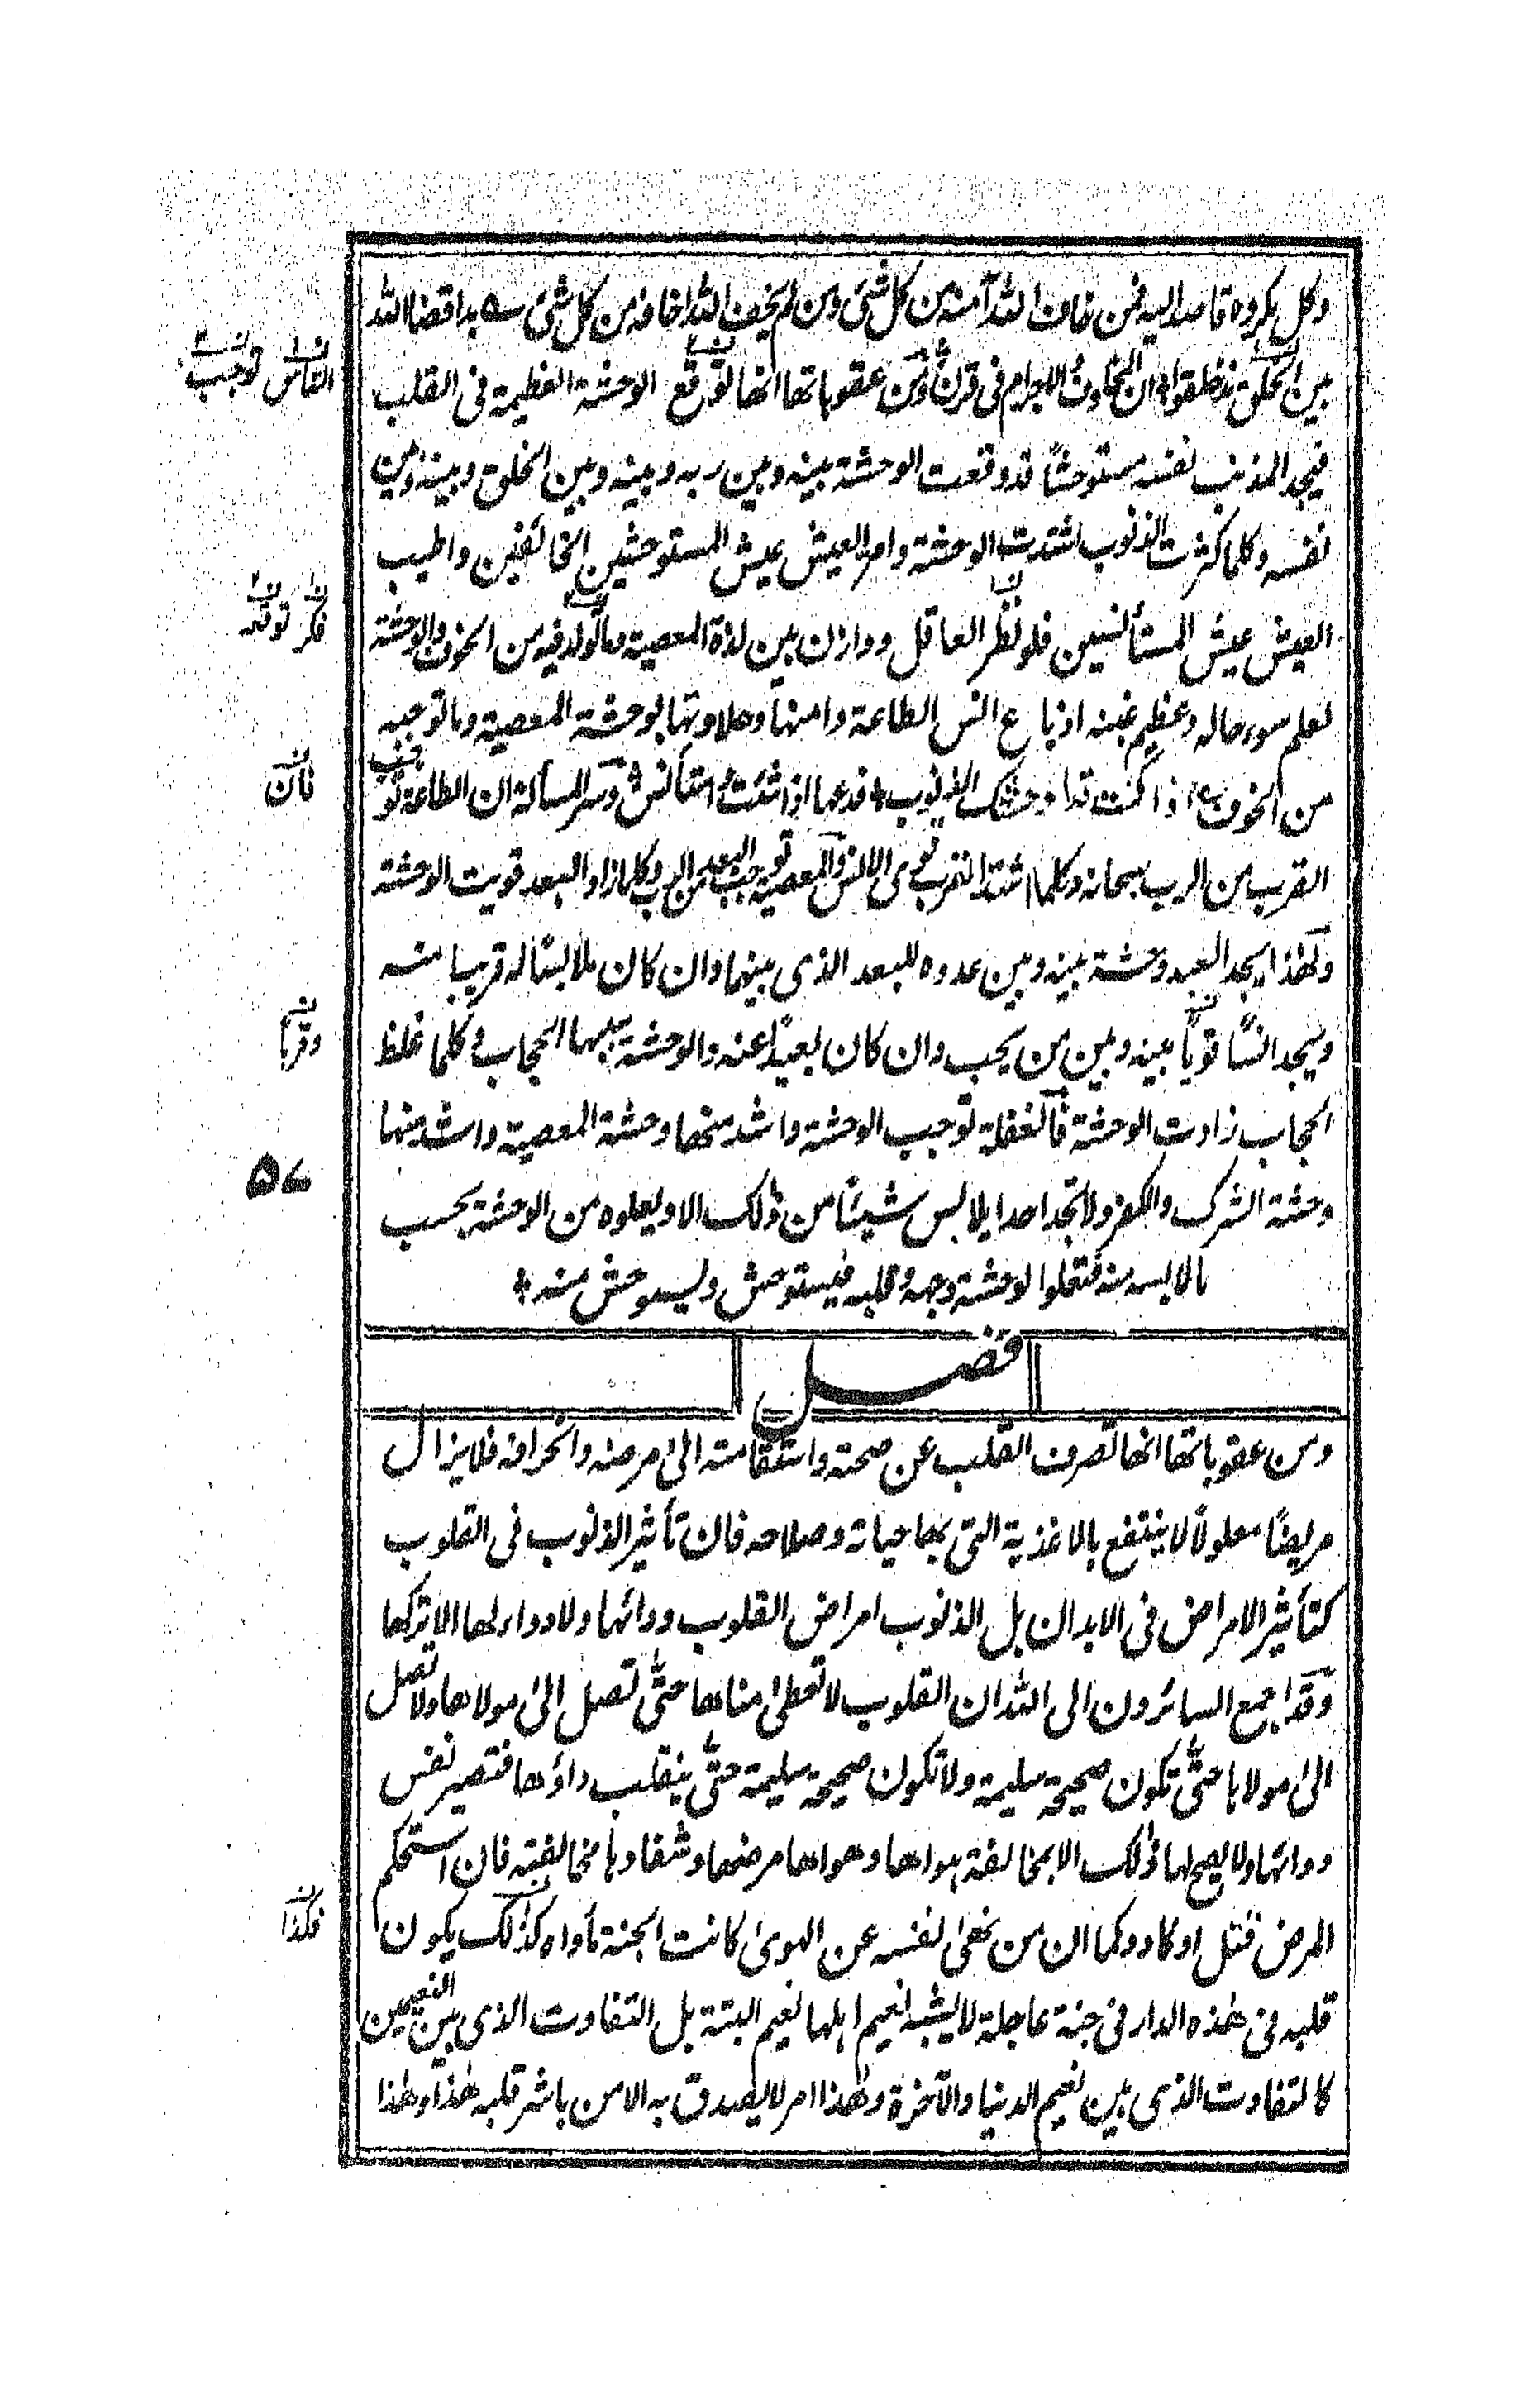 وكل مكروه قاصدا اليه فمن خاف الله آمنه من كل شئ ومن لم يخف الله اخافه من كل شئ ؎ بدا قضا الله
بين الخلق مذ خلقوا ان المخاوف والاجرام فى قرن ومن عقوباتها انها توقع الوحشة العظيمة فى القلب
فيجد المذنب نفسه مستوحشاً قد وقعت الوحشة بينه وبين ربه وبينه وبين الخلق وبينه وبين
نفسه وكلما كثرت الذنوب اشتدت الوحشة وامر العيش عيش المستوحشين الخائفين واطيب
العيش عيش المستأنسين فلو نظر العاقل ووازن بين لذة المعصية وما تولد فيه من الخوف والوحشة
لعلم سوء حاله وعظيم غبنه اذ باع انس الطاعة وامنها وحلاوتها بوحشة المعصية وما توجبه
من الخوف ع اذا كنت قد اوحشتك الذنوب ٭ فدعها اذا شئت واستأنس ٭ وسر المسألة ان الطاعة توجب
القرب من الرب سبحانه وكلما اشتد القرب قوى الانس والمعصية توجب البعد من الرب وكلما زاد البعد قويت الوحشة
ولهذا يجد العبد وحشة بينه وبين عدوه للبعد الذى بينهما وان كان ملابسًا له قريبا منه
ويجد انسًا قويًا بينه وبين من يحب وان كان بعيدًا عنه والوحشة سببها الحجاب وكلما غلظ
الحجاب زادت الوحشة فالغفلة توجب الوحشة واشد منها وحشة المعصية واشد منها
وحشة الشرك والكفر ولا تجد احدا يلابس شيئًا من ذلك الا ويعلوه من الوحشة بحسب
ما لابسه منه فتعلوا الوحشة وجهه وقلبه فيستوحش ويستوحش منه ٭
فصل
ومن عقوباتها انها تصرف القلب عن صحته واستقامته الى مرضه وانحرافه فلا يزال
مريضًا معلولاً لا ينتفع بالاغذية التى بها حياته وصلاحه فان تأثير الذنوب فى القلوب
كتأثير الامراض فى الابدان بل الذنوب امراض القلوب ودائها ولا دواء لها الا تركها
وقد اجمع السائرون الى الله ان القلوب لا تعطى مناها حتى تصل الى مولاها ولا تصل
الى مولاها حتى تكون صحيحة سليمة ولا تكون صحيحة سليمة حتى ينقلب داؤها فتصير نفس
دوائها ولا يصح لها ذلك الا بمخالفة هواها وهواها مرضها وشفاوها مخالفته فان استحكم
المرض قتل او كاد وكما ان من نهى نفسه عن الهوى كانت الجنة مأواه كذلك يكون
قلبه فى هذه الدار فى جنة عاجلة لا يشبه نعيم اهلها نعيم البتة بل التفاوت الذى بين النعيمين
كالتفاوت الذى بين نعيم الدنيا والآخرة وهذا امر لا يصدق به الا من باشر قلبه هذا وهذا
الناس توجب
فكر توقد
فان
وقربا
٥٧
فكذا